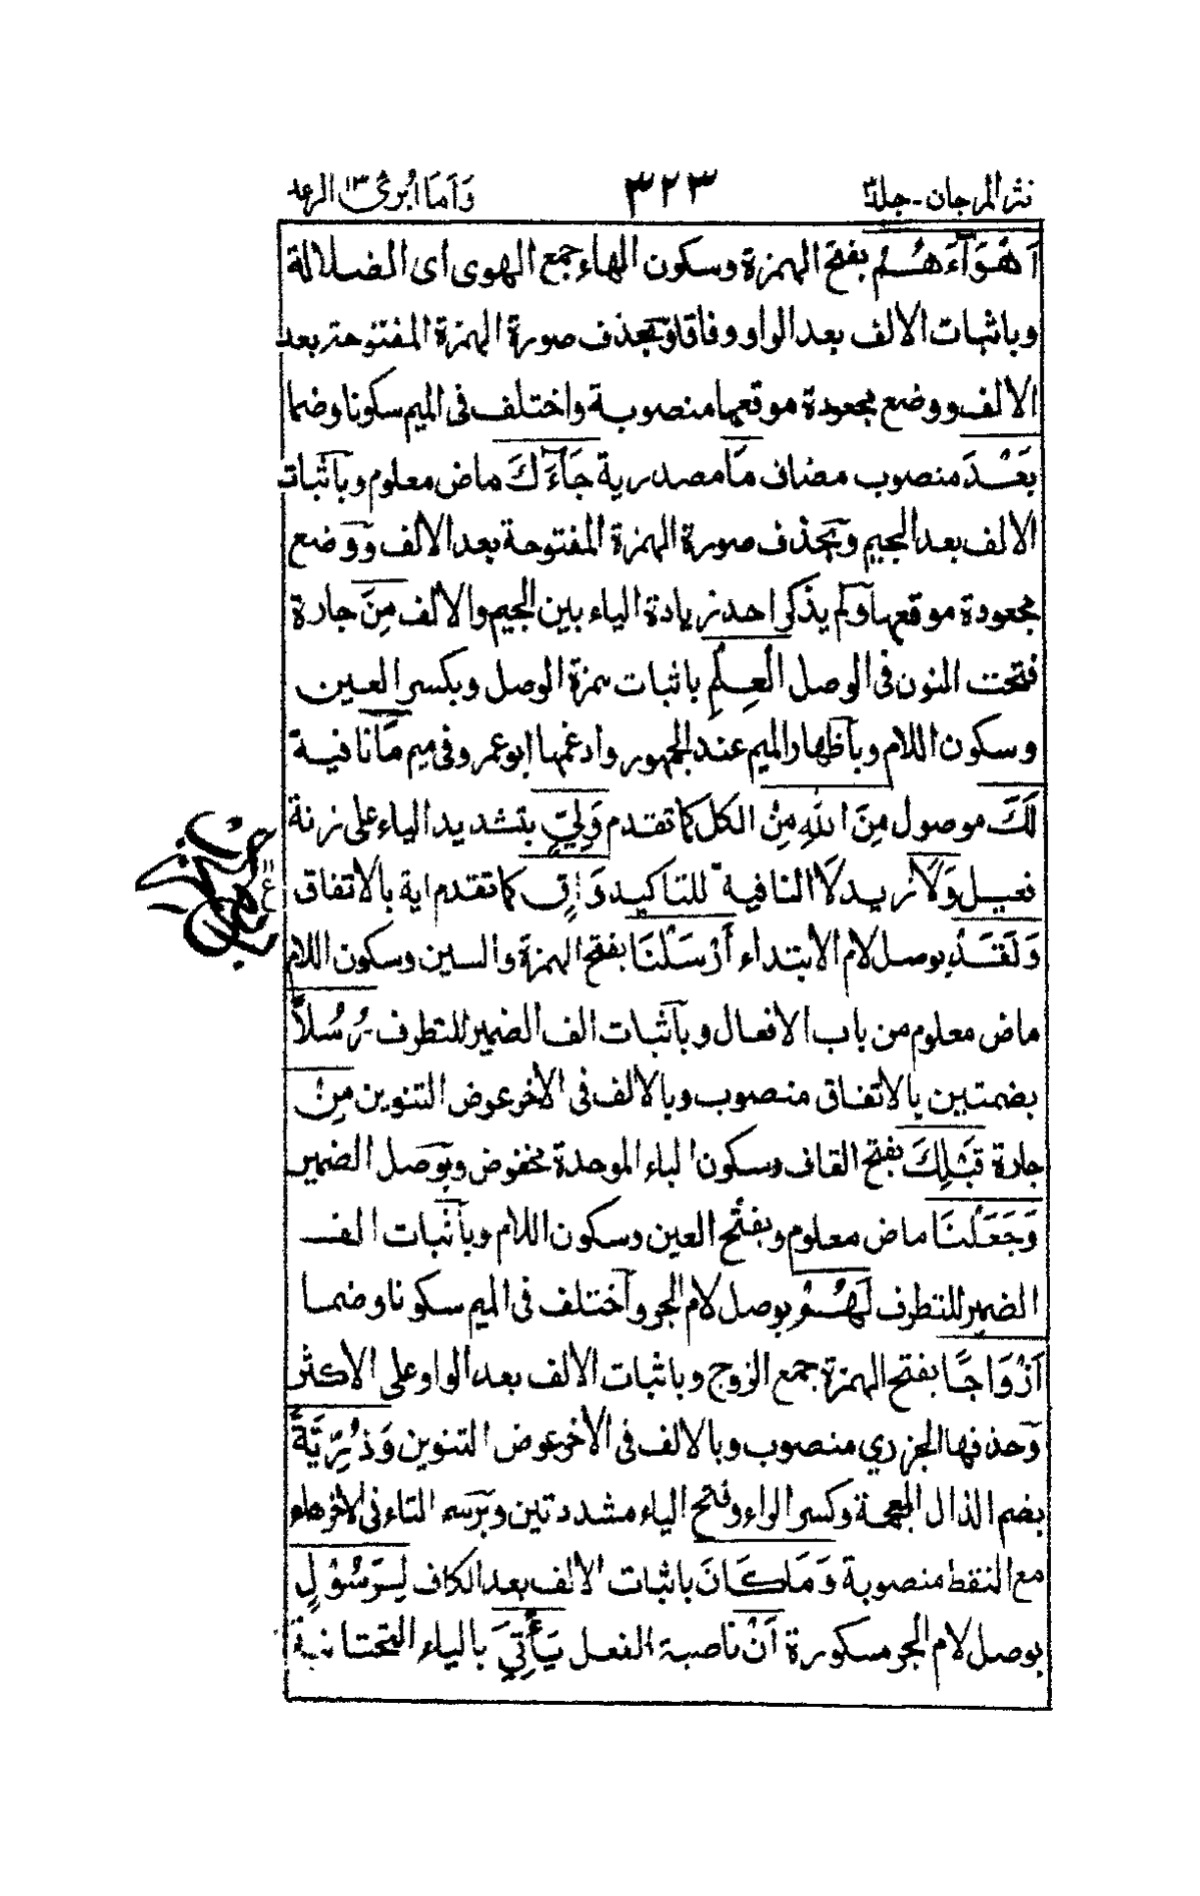 نثر المرجان - جلد٣ ٣٢٣ وَاَمَا اُبرئ ١٣ الرعد
اَهْوَآءَهُمْ بفتح الهمزة وسكون الهاء جمع الهوى اى الضلالة
وباثبات الالف بعد الواو وفاقا وَبحذف صورة الهمزة المفتوحة بعد
الالف ووضع مجعودة موقعها منصوبة واختلف فى الميم سكونا وضما
بَعْدَ منصوب مضاف مَا مصدرية جَآءَكَ ماض معلوم وبآثبات
الالف بعد الجيم وبحذف صورة الهمزة المفتوحة بعد الالف وَوضع
مجعودة موقعها وَلم يذكر احد زيادة الياء بين الجيم والالف مِنَ جارة
فتحت النون فى الوصل الْعِلْمِ باثبات همزة الوصل وبكسر العين
وسكون اللام وبآظهار الميم عند الجمهور وادغمها ابو عمرو فى ميم مَا نافية
لَكَ موصول مِنَ اللهِ مِنْ الكل كما تقدم وَلِيٍّ بتشديد الياء على زنة
فعيل وَلَا زيد لَا النافية للتاكيد وَاقٍ كما تقدم اية بالاتفاق
ع
وَلَقَدْ بوصل لام الابتداء أَرْسَلْنَا بفتح الهمزة والسين وسكون اللام
ماض معلوم من باب الافعال وبآثبات الف الضمير للتطرف رُسُلاً
بضمتين بالاتفاق منصوب وبالالف فى الاخر عوض التنوين مِنْ
جارة قَبْلِكَ بفتح القاف وسكون الباء الموحدة مخفوض وبوَصل الضمير
وَجَعَلْنَا ماض معلوم وبفتح العين وسكون اللام وبآثبات الف
الضمير للتطرف لَهُمْ بوصل لام الجر وآختلف فى الميم سكونا وضما
اَزْوَاجًا بفتح الهمزة جمع الزوج وباثبات الالف بعد الواو على الاكثر
وَحذفها الجزري منصوب وبالالف فى الاخر عوض التنوين وَذُرِّيَّةً
بضم الذال المعجمة وكسر الراء وفتح الياء مشددتين وبرَسم التاء فى الاخر هاء
مع النقط منصوبة وَمَا كَانَ باثبات الالف بعد الكاف لِرَسُوْلٍ
بوصل لام الجر مكسورة اَنْ ناصبة الفعل يَأْتِيَ بالياء التحتانية